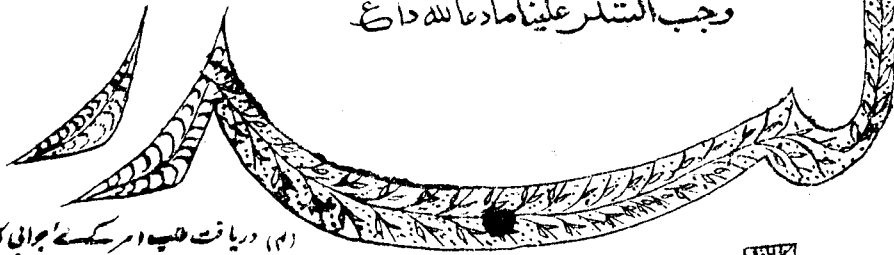 وجب الشكر علينا مادعا لله داع
(۴) دریافت طلب امر کے لئے جوابی